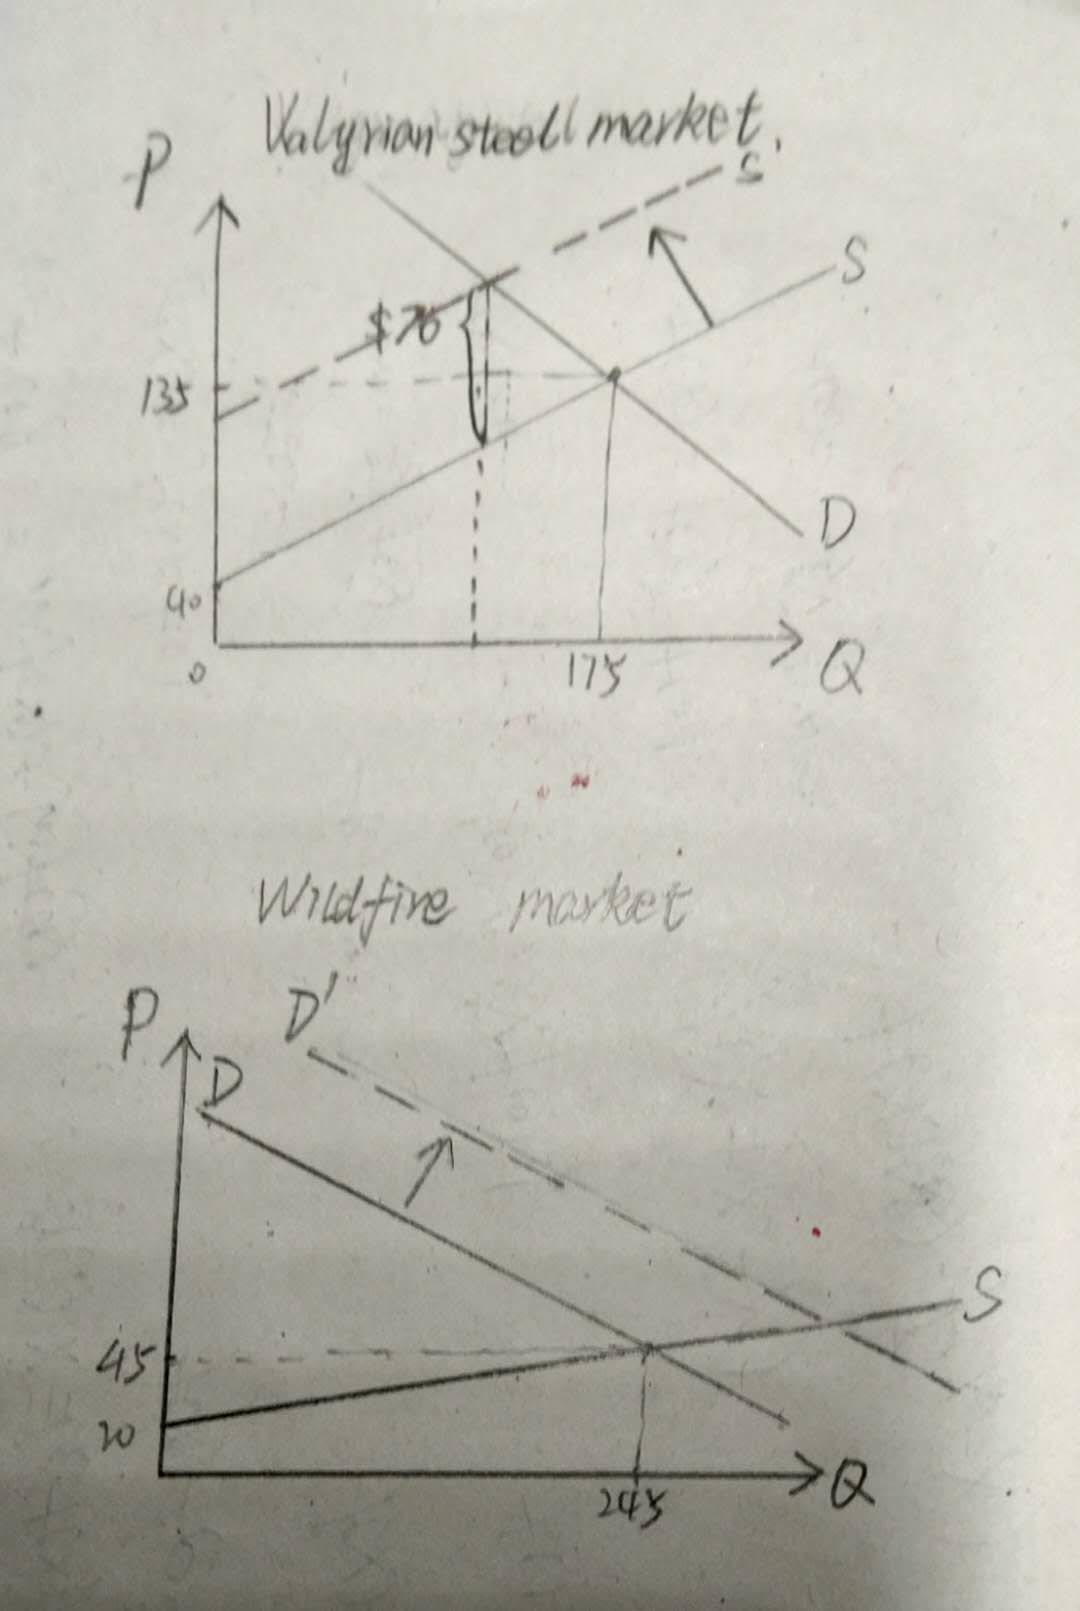 Valyrian steell market.
P
S'
S
$76
135
D
40
0
175
Q
Wildfire market
D'
P
D
S
45
20
245
Q